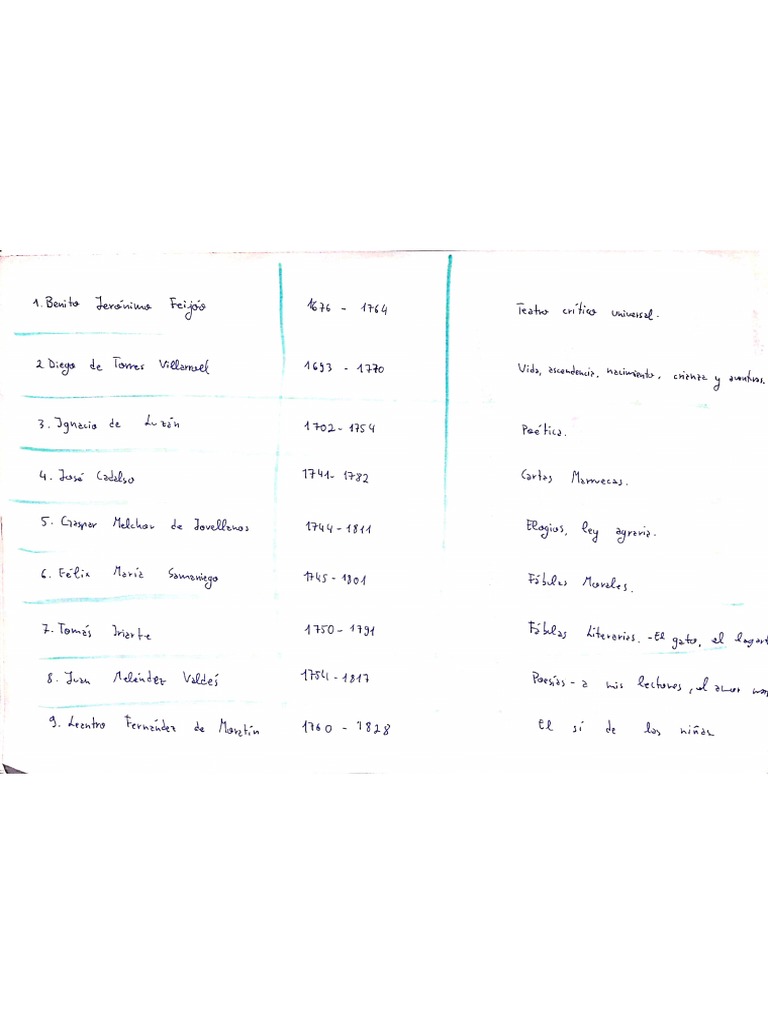 1. Benito Jerónimo Feijóo 1676 - 1764 Teatro crítico universal.
2 Diego de Torres Villarroel 1693 - 1770 Vida, ascendencia, nacimiento, crianza y aventuras.
3. Ignacio de Luzán 1702 - 1754 Poética.
4. José Cadalso 1741 - 1782 Cartas Marruecas.
5. Gaspar Melchor de Jovellanos 1744 - 1811 Elogios, ley agraria.
6. Félix María Samaniego 1745 - 1801 Fábulas Morales.
7. Tomás Iriarte 1750 - 1791 Fábulas Literarias. - El gato, el lagart
8. Juan Meléndez Valdés 1754 - 1817 Poesías - a mis lectores, el amor
9. Leantro Fernández de Moratín 1760 - 1828 El sí de las niñas